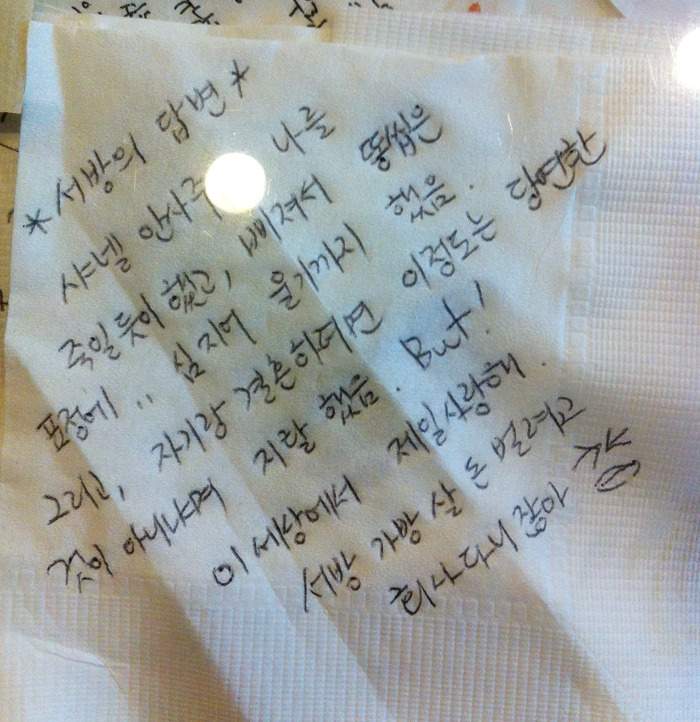 *서방의 답변*
샤넬 안사주 나를
죽일듯이 했고, 삐져서 똥씹은
표정에.. 심지어 울기까지 했음.
그리고, 자기랑 결혼하려면 이정도는 당연한
것이 아니냐며 지랄 했음. But!
이 세상에서 제일사랑해.
서방 가방 살 돈 벌려고
회사다니잖아